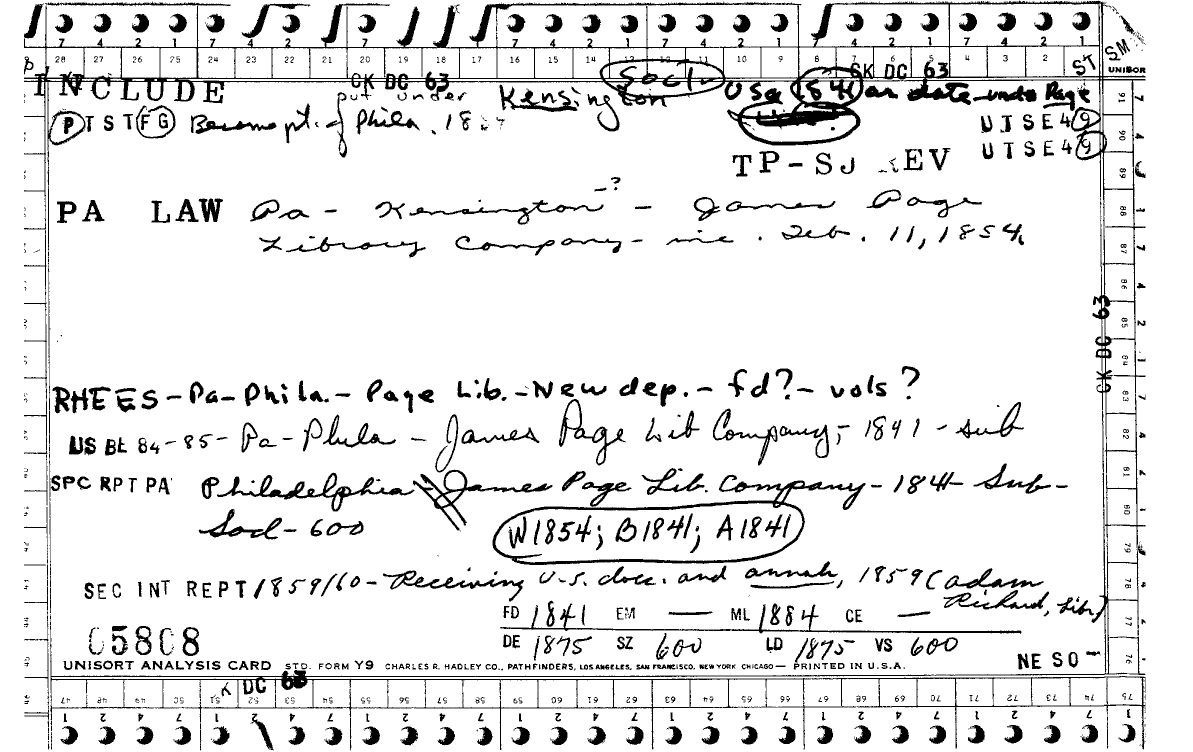 7 4 2 1 7 4 2 1 7 4 2 1 7 4 2 1 7 4 2 1 7 4 2 1 7 4 2 1
28 27 26 25 24 23 22 21 20 19 18 17 16 15 14 13 12 11 10 9 8 7 6 5 4 3 2 1
ST SM
UNISOR
CK DC 63 Soc1 CK DC 63
INCLUDE put under Kensington Use 1841 as date unde Page
P T S T F G Became pt. of Phila. U T S E 4 9
U T S E 4 9
TP-SJ REV
PA LAW Pa - Kensington -? - James Page
Library Company - inc. Feb. 11, 1854
CK DC 63
RHEES - Pa - Phila. - Page Lib. - New dep. - fd? - vols?
US BE 84-85 - Pa - Phila - James Page Lib Company, - 1841 - sub
SPC RPT PA Philadelphia - James Page Lib. Company - 1841 - Sub -
Socl - 600
W1854; B1841; A1841
SEC INT REPT 1859/60 - Receiving U.S. docs. and annals, 1859 (Adam
Richard, Lib.)
FD 1841 EM — ML 1884 CE —
DE 1875 SZ 600 LD 1875 VS 600
05808
UNISORT ANALYSIS CARD STD. FORM Y9 CHARLES R. HADLEY CO., PATHFINDERS, LOS ANGELES, SAN FRANCISCO, NEW YORK CHICAGO — PRINTED IN U.S.A.
NE SO -
CK DC 63